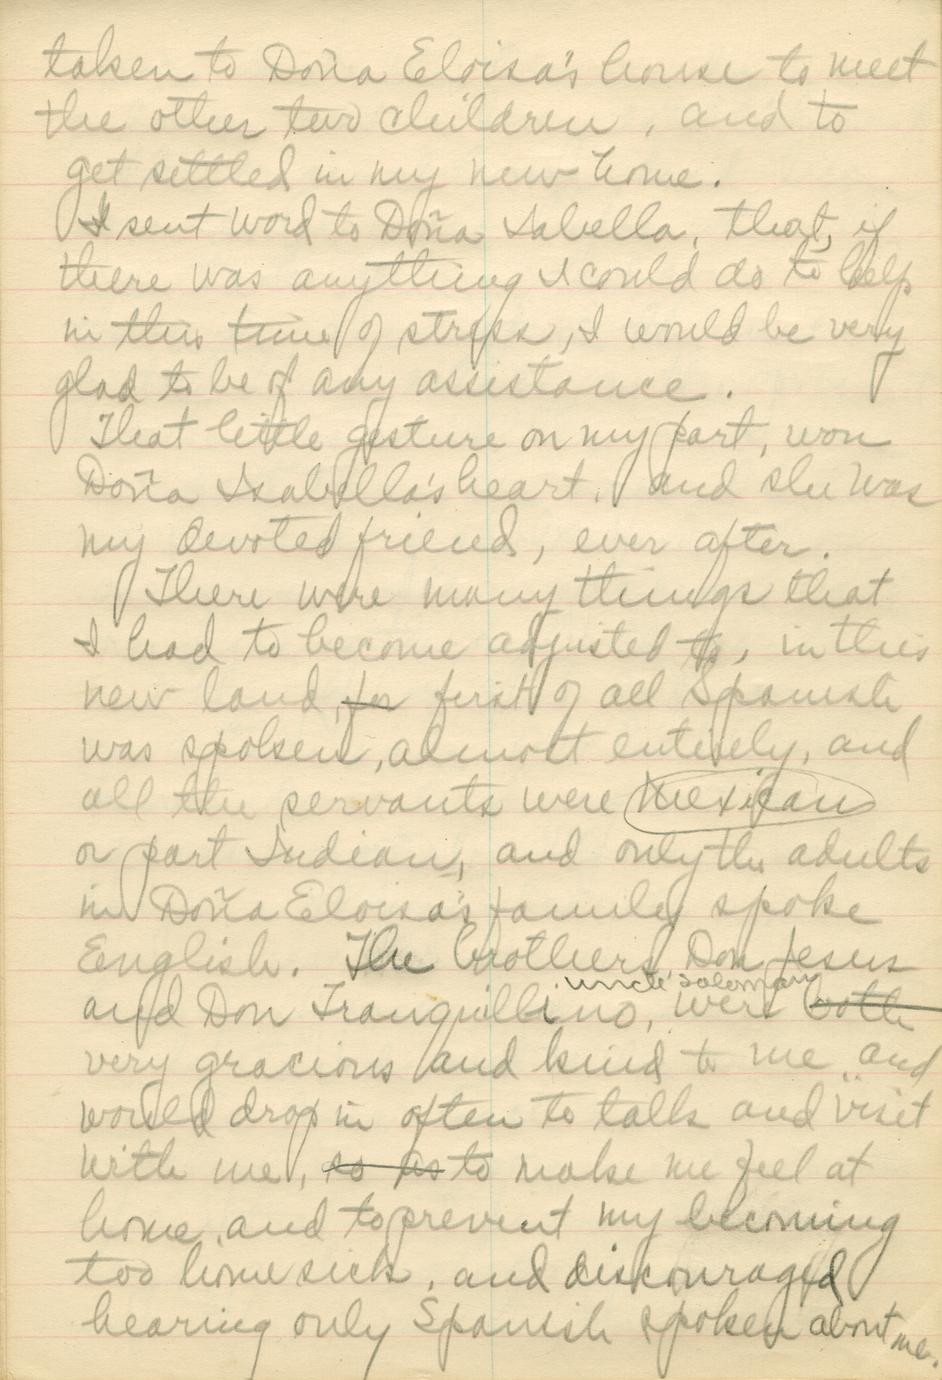 taken to Doña Eloisa's house to meet
the other two children, and to
get settled in my new home.
I sent word to Doña Isabella, that, if
there was anything I could do to help
in this time of stress, I would be very
glad to be of any assistance.
That little gesture on my part, won
Doña Isabella's heart, and she was
my devoted friend, ever after.
There were many things that
I had to become adjusted to, in this
new land, for first of all Spanish
was spoken, almost entirely, and
all the servants were Mexican
or part Indian, and only the adults
in Doña Eloisa's family spoke
English. The brothers, Don Jesus
uncle Soloman
and Don Tranquillino, were both
very gracious and kind to me and
would drop in often to talk and "visit
with me, so as to make me feel at
home, and to prevent my becoming
too homesick, and discouraged
hearing only Spanish spoken about me.